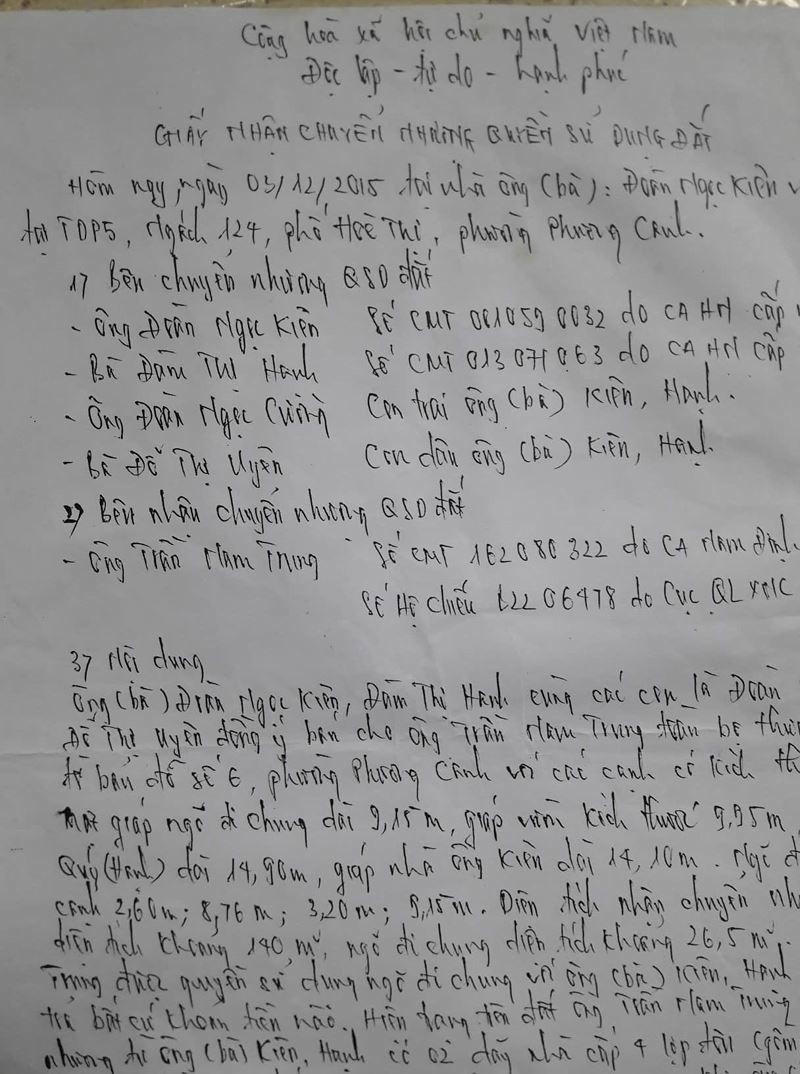 Cộng hoà xã hội chủ nghĩa Việt Nam
Độc lập - tự do - hạnh phúc
GIẤY NHẬN CHUYỂN NHƯỢNG QUYỀN SỬ DỤNG ĐẤT
Hôm nay, ngày 03/12/2015 tại nhà ông (bà): Đoàn Ngọc Kiên
tại TDP5, Ngách 124, phố Hoè Thị, phường Phương Canh.
1) Bên chuyển nhượng QSD đất
- Ông Đoàn Ngọc Kiên Số CMT 0010590032 do CA HN cấp
- Bà Đàm Thị Hạnh Số CMT 013071063 do CA HN cấp
- Ông Đoàn Ngọc Cường Con trai ông (bà) Kiên, Hạnh.
- Bà Đỗ Thị Uyên Con dâu ông (bà) Kiên, Hạnh
2) Bên nhận chuyển nhượng QSD đất
- Ông Trần Nam Trung Số CMT 162080322 do CA Nam Định
Số Hộ chiếu 2206478 do Cục QLXNC
3) Nội dung
Ông (bà) Đoàn Ngọc Kiên, Đàm Thị Hạnh cùng các con là Đoàn
Đỗ Thị Uyên đồng ý bán cho ông Trần Nam Trung toàn bộ
tờ bản đồ số 6, phường Phương Canh với các cạnh có kích
Mặt giáp ngõ đi chung dài 9,15m, giáp vườn kích thước 9,95m,
Quý (Hạnh) dài 14,90m, giáp nhà ông Kiên dài 14,10m. Ngõ
cạnh 2,60m; 8,76m; 3,20m; 9,15m. Diện tích nhận chuyển
diện tích khoảng 140 m², ngõ đi chung diện tích khoảng 26,5m².
Trung được quyền sử dụng ngõ đi chung với ông (bà) Kiên, Hạnh
trả bất cứ khoản tiền nào. Hiện trạng trên đất ông Trần Nam Trung
nhượng từ ông (bà) Kiên, Hạnh có 02 dãy nhà cấp 4 lợp (gồm